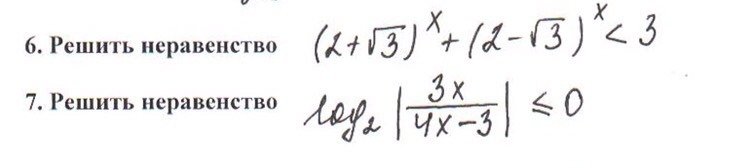 6. Решить неравенство (2+√3)^x + (2-√3)^x < 3
7. Решить неравенство log₂ |3x/(4x-3)| ≤ 0